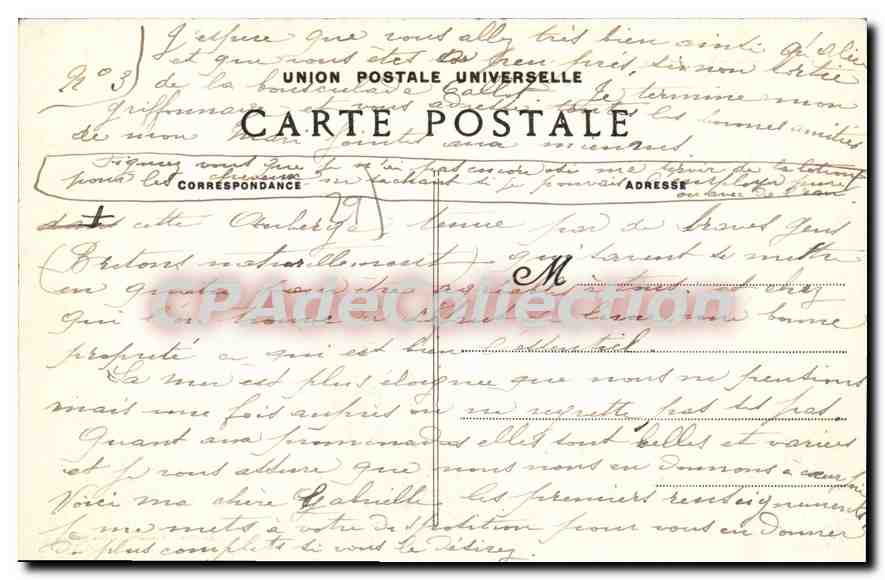 J'espère que vous allez très bien ainsi qu'Alice
N° 3
et que vous êtes à peu près, sinon sortie
UNION POSTALE UNIVERSELLE
de la bousculade Je termine mon
griffonnage et vous adresse les bonnes amitiés
CARTE POSTALE
de mon mari jointes aux miennes
Figurez vous que je n'ai pas encore pu me servir de la lotion
pour les cheveux ne sachant si je pouvais l'employer pure
CORRESPONDANCE
ADRESSE
ou avec de l'eau
29
dans cette Auberge tenue par de braves gens
(Bretons naturellement) qui savent se mettre
M
en quatre pour être à tous et chez
qui bonne une bonne
propreté ce qui est bien l'essentiel.
La mer est plus éloignée que nous ne pensions
mais une fois auprès on ne regrette pas ses pas.
Quant aux promenades elles sont belles et variées
et je vous assure que nous nous en donnons à cœur joie
Voici ma chère Gabrielle les premiers renseignements
je me mets à votre disposition pour vous en donner
de plus complets si vous le désirez.
CPAdeCollection